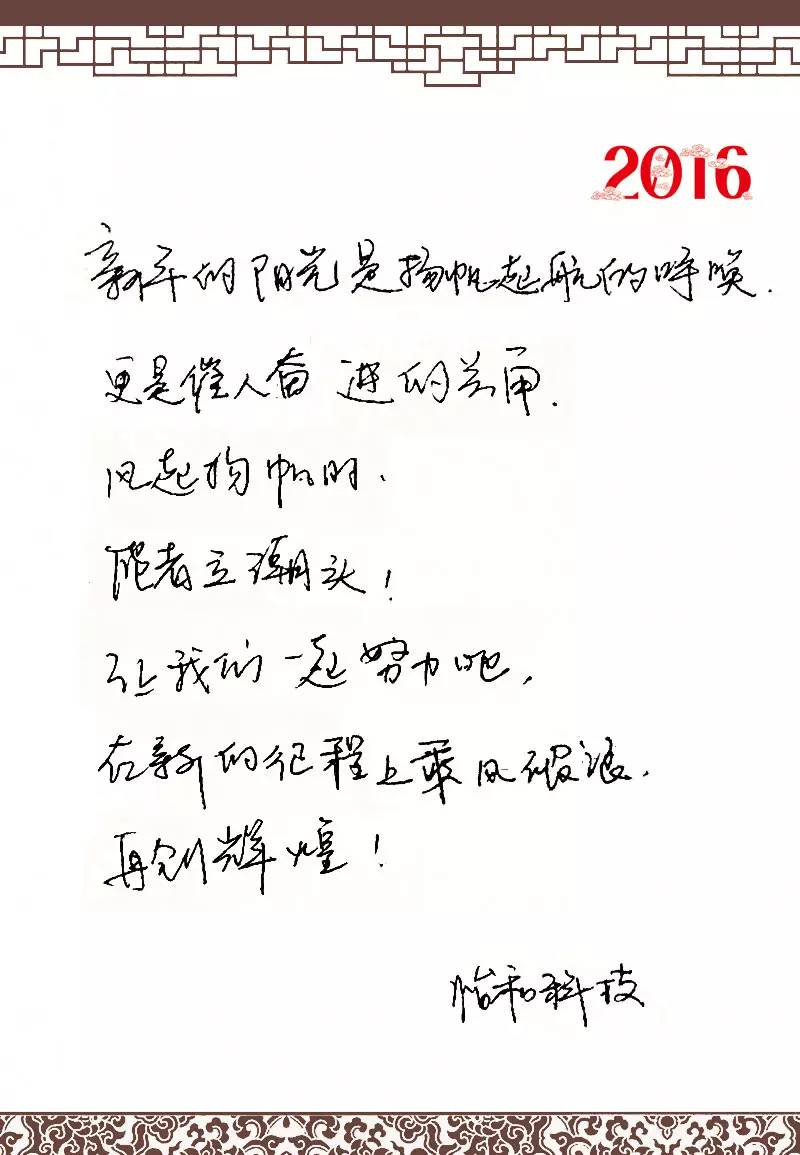 2016
新年的阳光是扬帆起航的呼唤.
更是催人奋进的
风起扬帆时.
能者立潮头!
让我们一起努力吧,
在新的征程上乘风破浪.
再创辉煌!
怡和科技